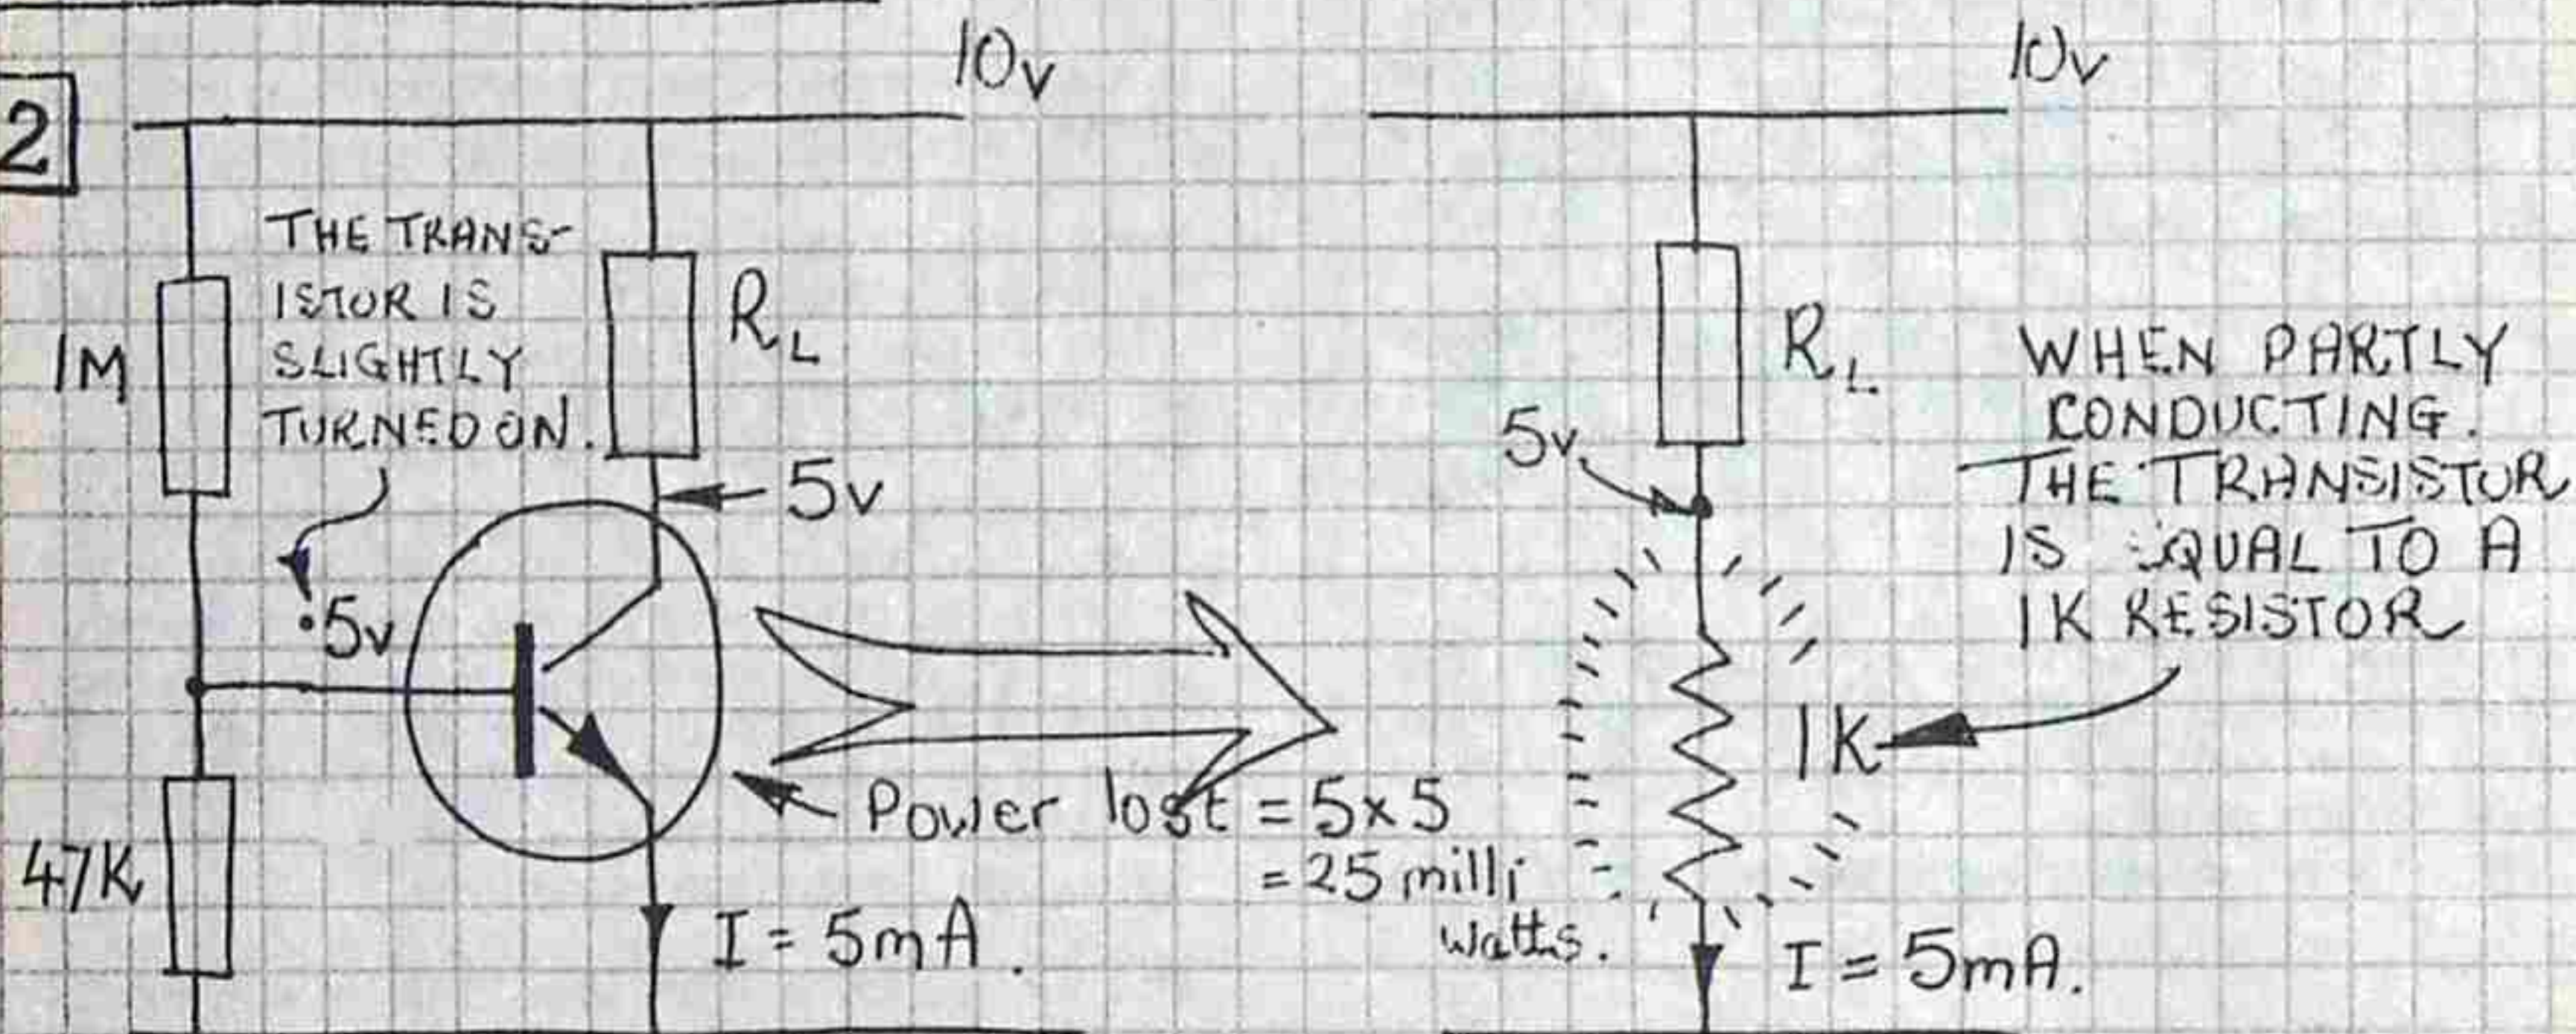 2
10v
THE TRANS-
ISTOR IS
SLIGHTLY
TURNED ON.
1M
RL
5v
.5v
47K
Power lost = 5x5
= 25 milli
watts.
I = 5mA.
10v
RL
5v
WHEN PARTLY
CONDUCTING.
THE TRANSISTOR
IS EQUAL TO A
1K RESISTOR
1K
I = 5mA.